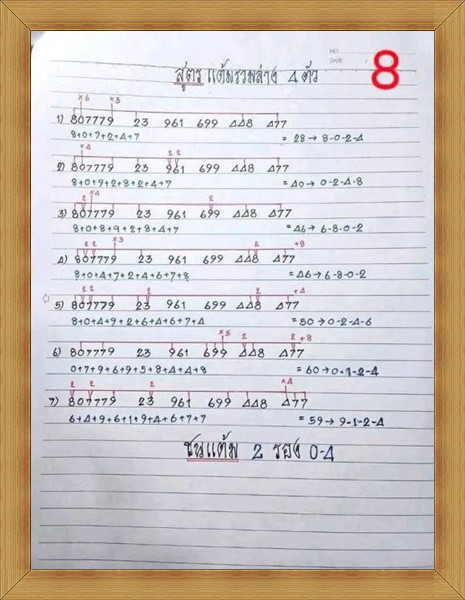 NO.
DATE
8
สูตร แต้มรวมล่าง 4 ตัว
×6 ×3
1) 807779 23 961 699 448 477
8+0+7+2+4+7 = 28→ 8-0-2-4
×4 2 2
2) 807779 23 961 699 448 477
8+0+9+2+8+2+4+7 = 40→ 0-2-4-8
2 ×4 2
3) 807779 23 961 699 448 477
8+0+8+9+2+8+4+7 = 46→ 6-8-0-2
2 2 ×3 2 +8
4) 807779 23 961 699 448 477
8+0+4+7+2+4+6+7+8 = 46→ 6-8-0-2
2 2 2 2 +4
5) 807779 23 961 699 448 477
8+0+4+9+2+6+4+6+7+4 = 50→ 0-2-4-6
×5 2 2 +8
6) 807779 23 961 699 448 477
0+7+9+6+9+5+8+4+4+8 = 60→ 0-1-2-4
2 2 2 ×4
7) 807779 23 961 699 448 477
6+4+9+6+1+9+4+6+7+7 = 59→ 9-1-2-4
ชนแต้ม 2 รอง 0-4